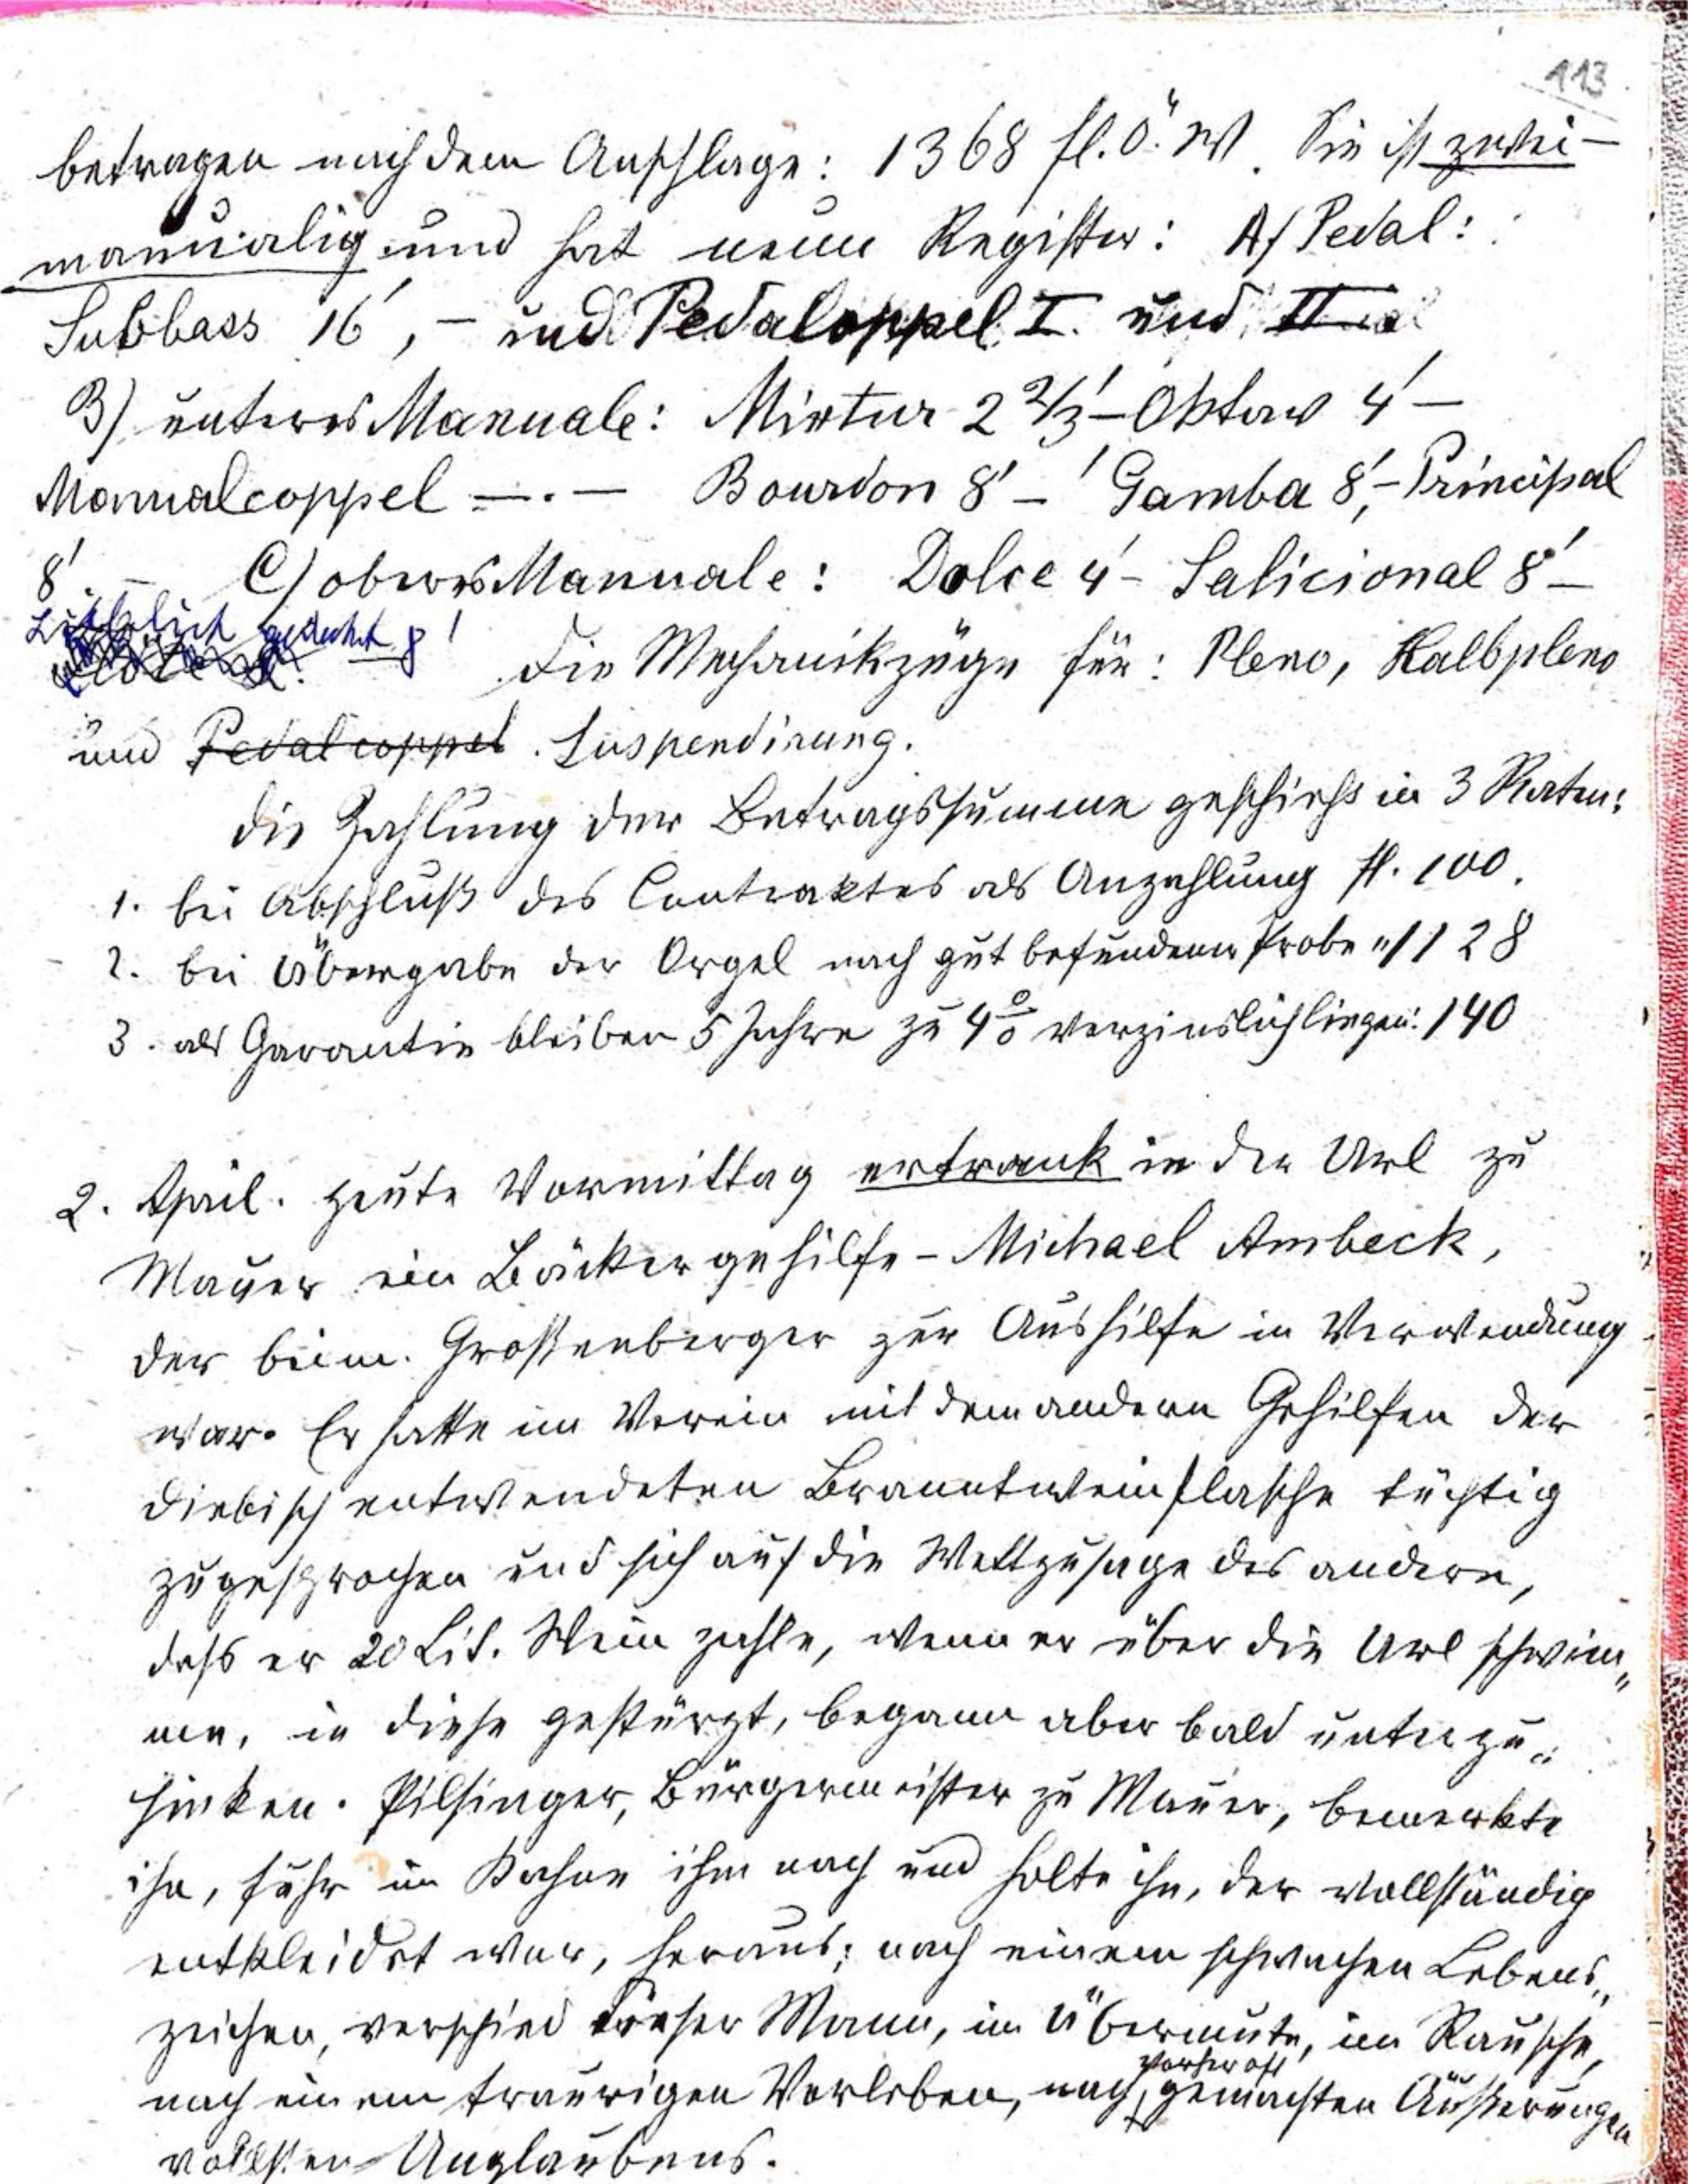 113
betragen nach dem Anschlage: 1368 fl. Ö. W. Sie ist zwei-
manualig und hat neun Register: A/ Pedal:
Subbass 16', - und Pedalcoppel I. und II
B) unteres Manuale: Mixtur 2 2/3' - Oktav 4' -
Manualcoppel -.- Bourdon 8' - Gamba 8', - Principal
8'. - C) oberes Manuale: Dolce 4' - Salicional 8' -
Lieblich gedeckt 8'
Die Mechanikzüge für: Pleno, Halbpleno
und Pedalcoppel. Suspendirung.
Die Zahlung der Betragssumme geschieht in 3 Raten:
1. bei Abschluß des Contraktes als Anzahlung fl. 100.
2. bei Übergabe der Orgel nach gut befundener Probe " 1128
3. als Garantie bleiben 5 Jahre zu 4% verzinslich liegen: 140
2. April. Heute Vormittag ertrank in der Url zu
Mauer ein Bäckergehilfe - Michael Ambeck,
der beim Großenberger zur Aushilfe in Verwendung
war. Er hatte im Verein mit dem andern Gehilfen der
diebisch entwendeten Branntweinflasche tüchtig
zugesprochen und sich auf die Wettzusage des andern,
daß er 20 Lit. Wein zahle, wenn er über die Url schwim„
me, in diese gestürzt, begann aber bald unterzu„
sinken. Pilsinger, Bürgermeister zu Mauer, bemerkte
ihn, fuhr im Kahne ihm nach und holte ihn, der vollständig
entkleidet war, heraus; nach einem schwachen Lebens„
zeichen, verschied dieser Mann, im Übermute, im Rausche,
vorher oft
nach einem traurigen Vorleben, nach gemachten Äußerungen
vollsten Unglaubens.